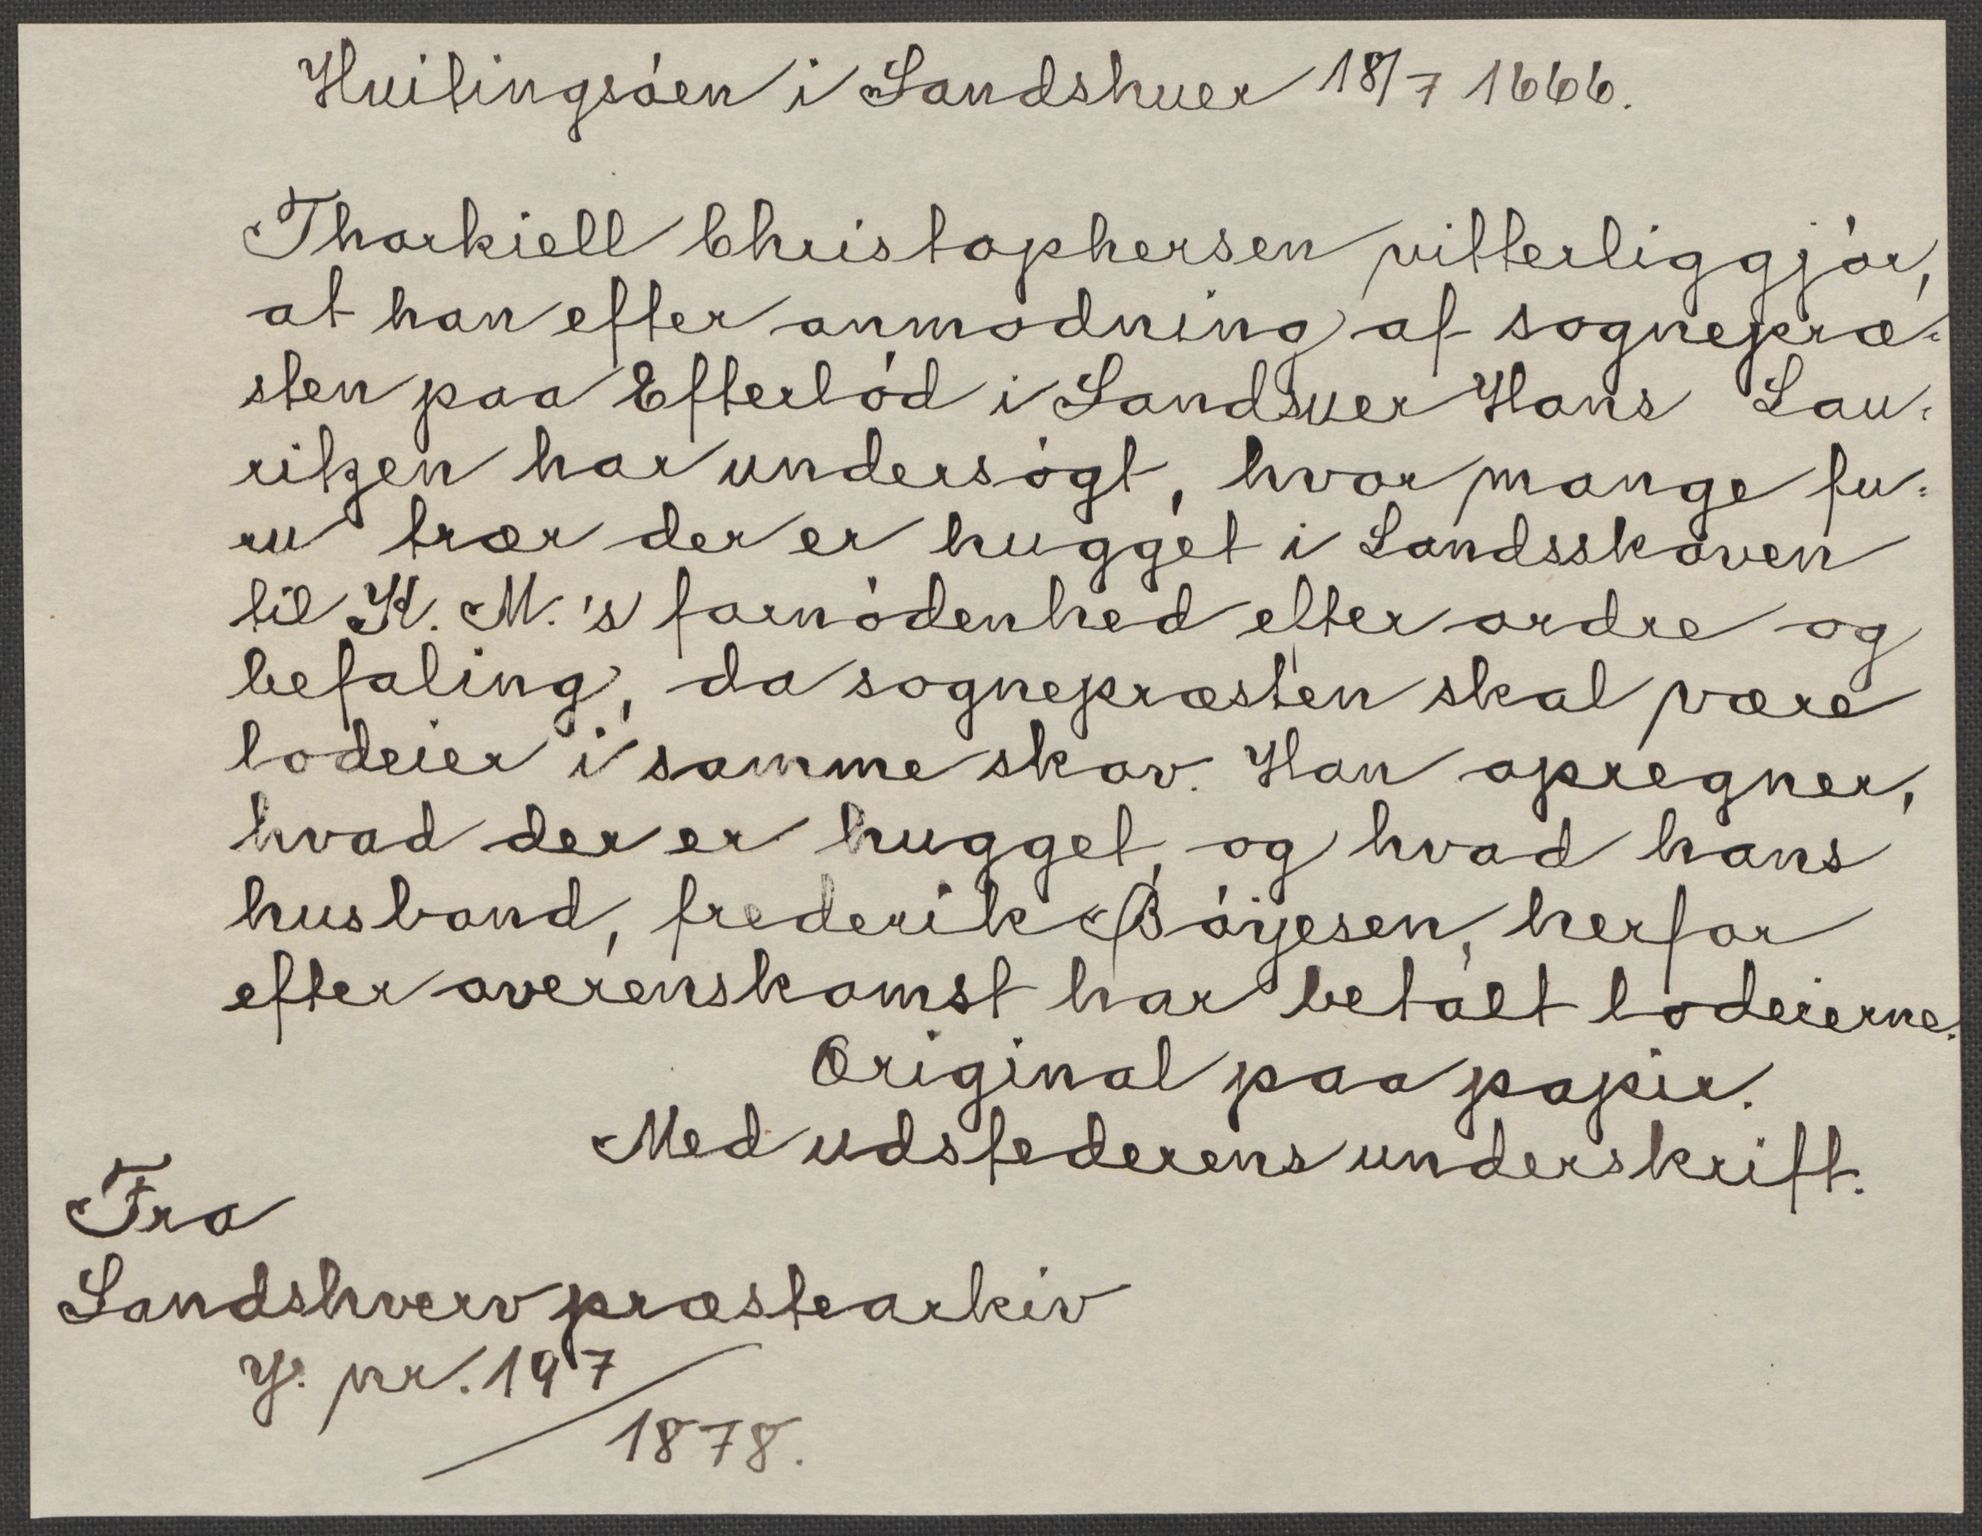 Huitingsóen i Sandshuer 18/7 1666.
Thorkiell Christophersen vitterliggjór,
at han efter anmodning af sognepræ-
sten paa Efteløod i Sandsuer Hans Lau-
ritzen har undersógt, hvor mange fu-
ru trær der er hugget i Landsskoven
til K. M.'s fornódenhed efter ordre og
befaling, da sognepræsten skal være
lodeier i samme skov. Han opregner,
hvad der er hugget, og hvad hans
husbond, frederik Bóyesen, herfor
efter overenskomst har betalt lodeierne.
Original paa papir.
Med udstederens underskrift.
Fra
Sandshverv præstearkiv
J. nr. 197/1878.